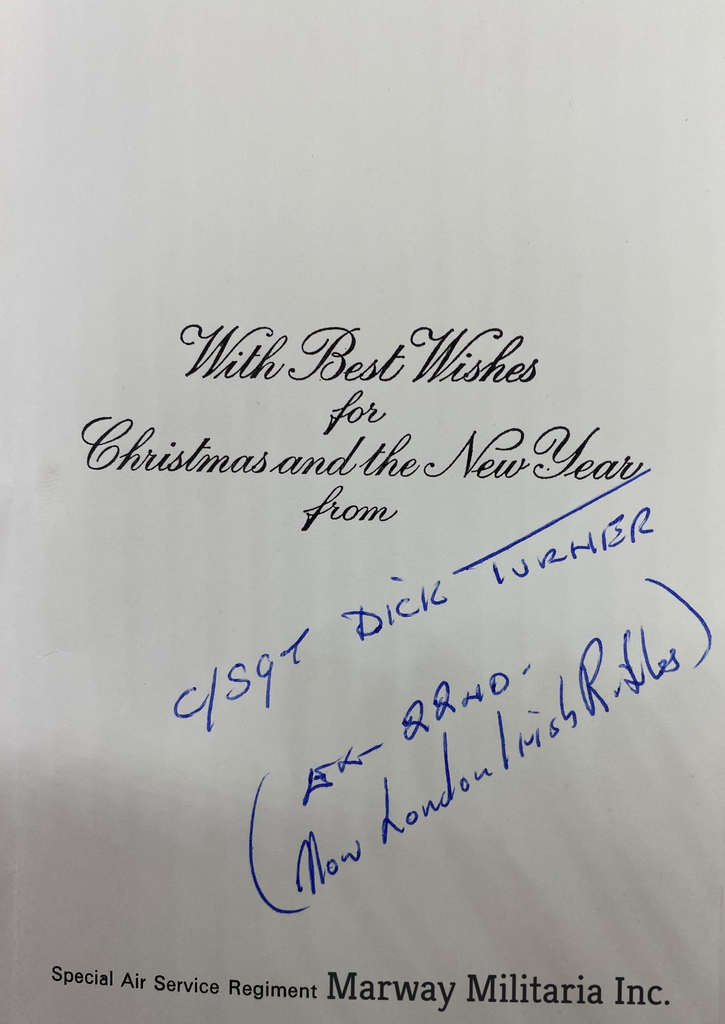 With Best Wishes
for
Christmas and the New Year
from
C/SGT DICK TURNER
(EX 22ND.
Now London Irish Rifles)
Special Air Service Regiment Marway Militaria Inc.